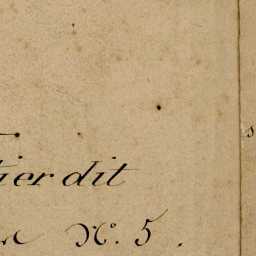 tier dit
N.º 5.